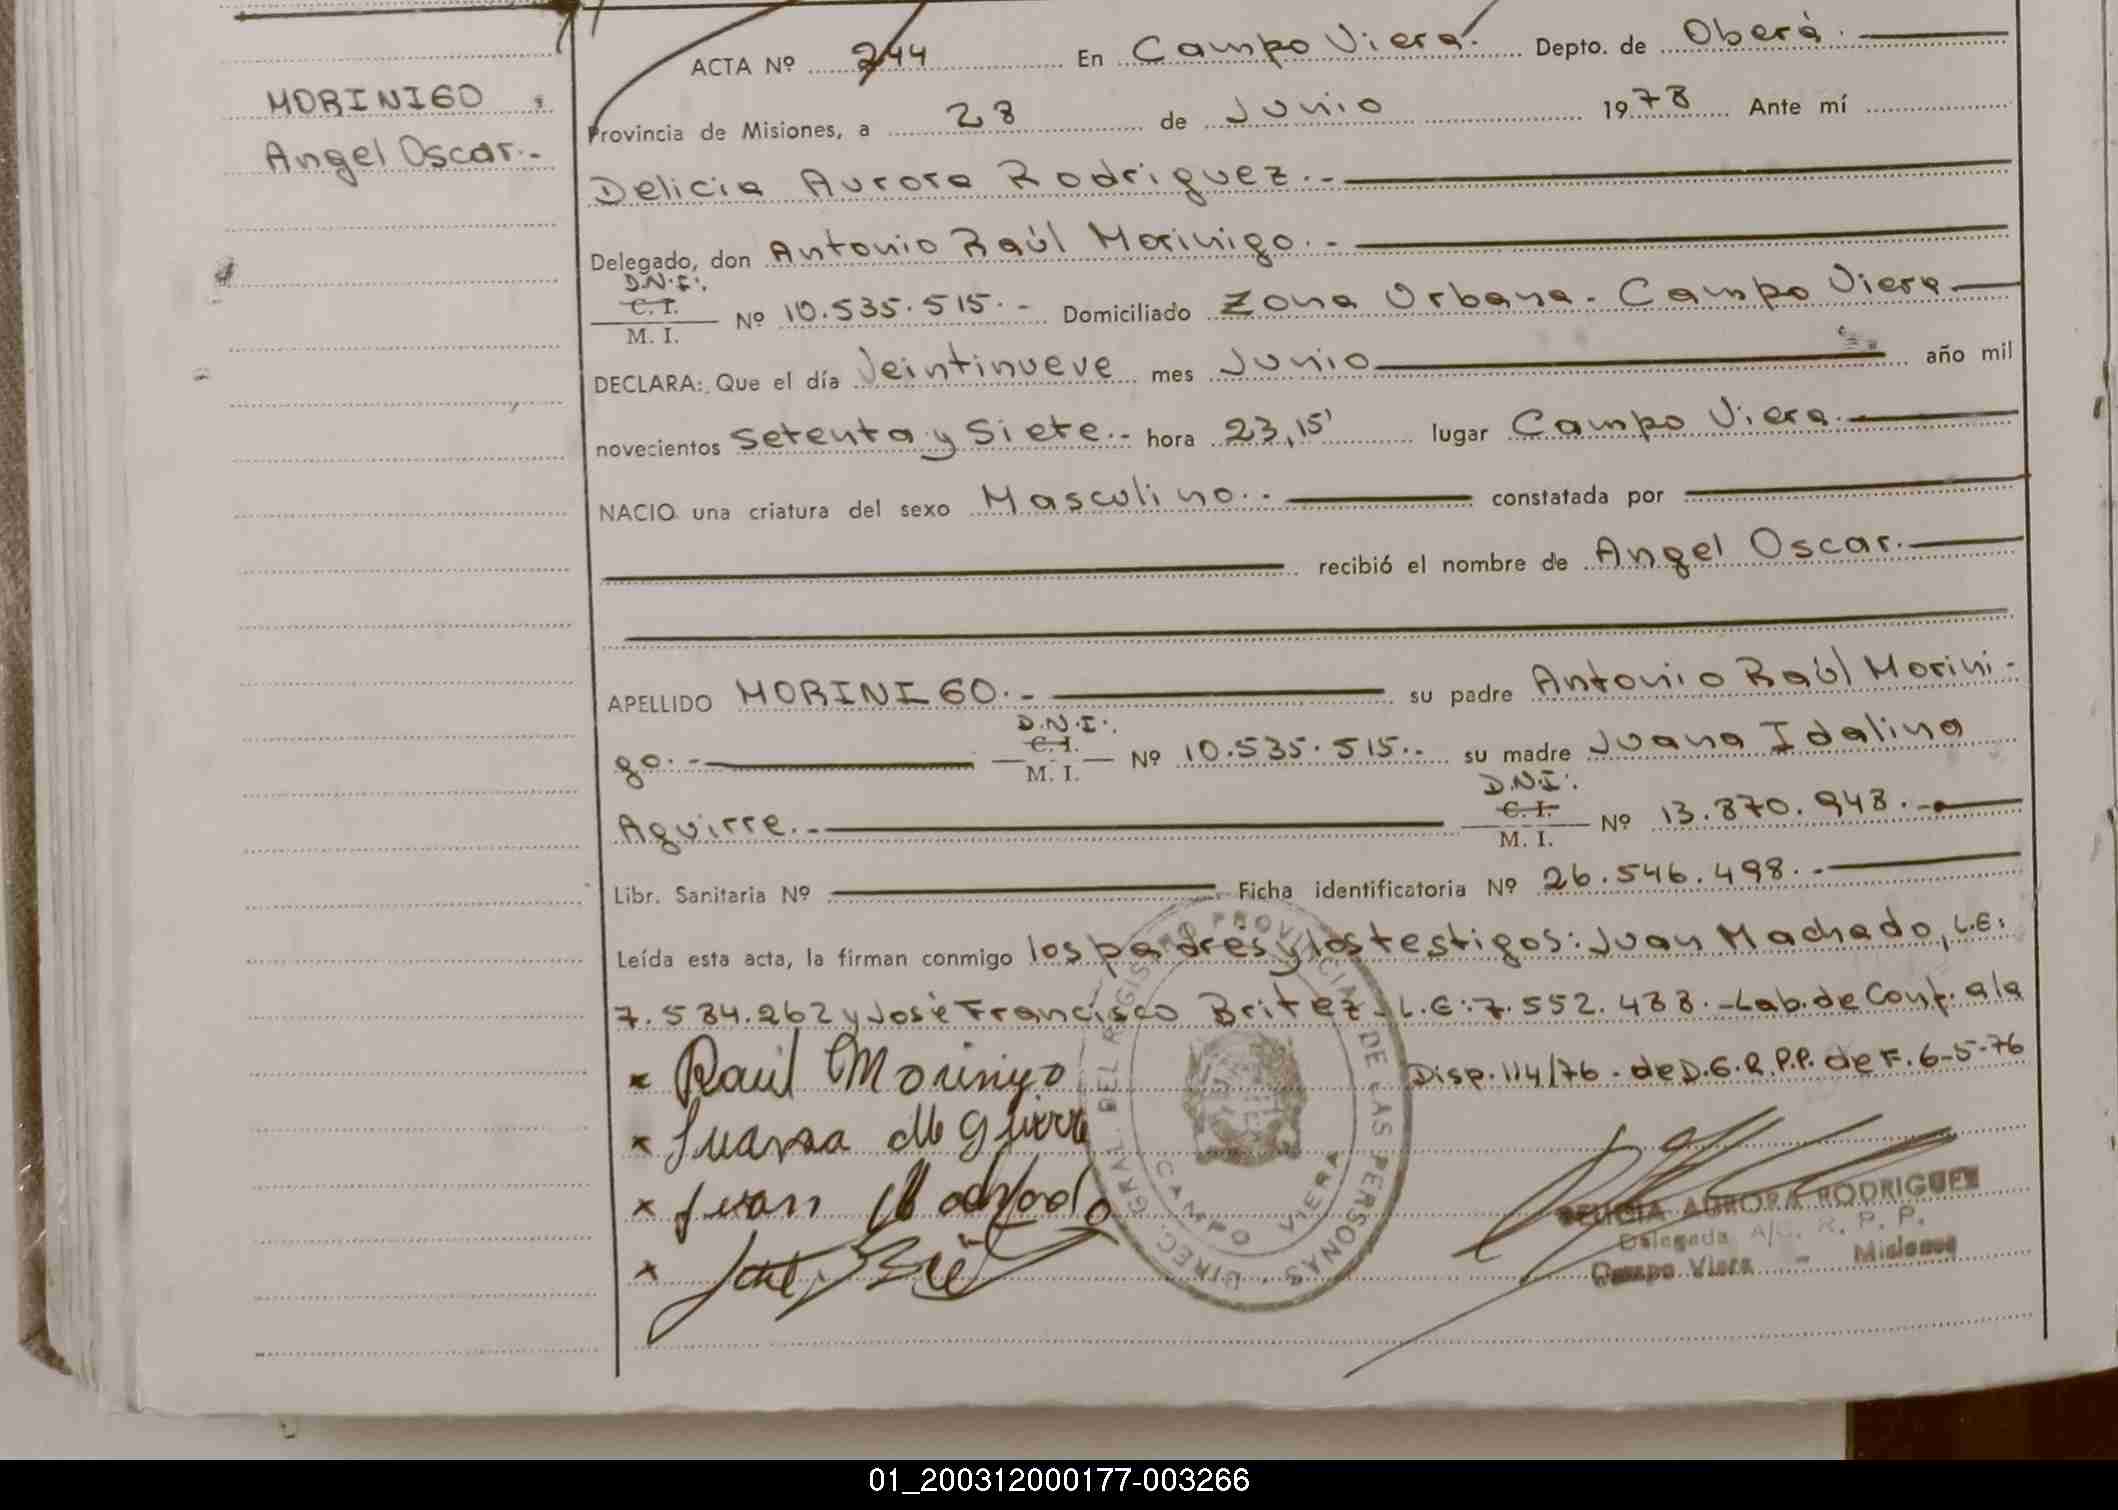 MORINIGO
Angel Oscar.-
ACTA Nº 244 En Campo Viera. Depto. de Oberá.
Provincia de Misiones, a 28 de Junio 1978 Ante mí
Delicia Aurora Rodriguez.-
Delegado, don Antonio Raúl Morinigo.-
D.N.I.
C. I.
M. I. Nº 10.535.515.- Domiciliado Zona Urbana - Campo Viera
DECLARA: Que el día Veintinueve mes Junio año mil
novecientos Setenta y Siete.- hora 23,15' lugar Campo Viera
NACIO una criatura del sexo Masculino.- constatada por
recibió el nombre de Angel Oscar.
APELLIDO MORINIGO.- su padre Antonio Raúl Morini-
go.- D.N.I. C. I. M. I. Nº 10.535.515.- su madre Juana Idalina
Aguirre.- D.N.I. C. I. M. I. Nº 13.870.948.-
Libr. Sanitaria Nº Ficha identificatoria Nº 26.546.498.-
Leída esta acta, la firman conmigo los padres y los testigos: Juan Machado, L.E:
7.584.262 y José Francisco Britez L.E: 7.552.488.-Lab. de Conf. a la
Disp. 114/76. de D.G.R.P.P. de F. 6-5-76
x Raúl Morinigo
x Juana Aguirre
x Juan Machado
x
DIREC. GRAL. DEL REGISTRO PROVINCIAL DE LAS PERSONAS
CAMPO VIERA
DELICIA AURORA RODRIGUEZ
Delegada A/C. R. P. P.
Campo Viera - Misiones
01_200312000177-003266